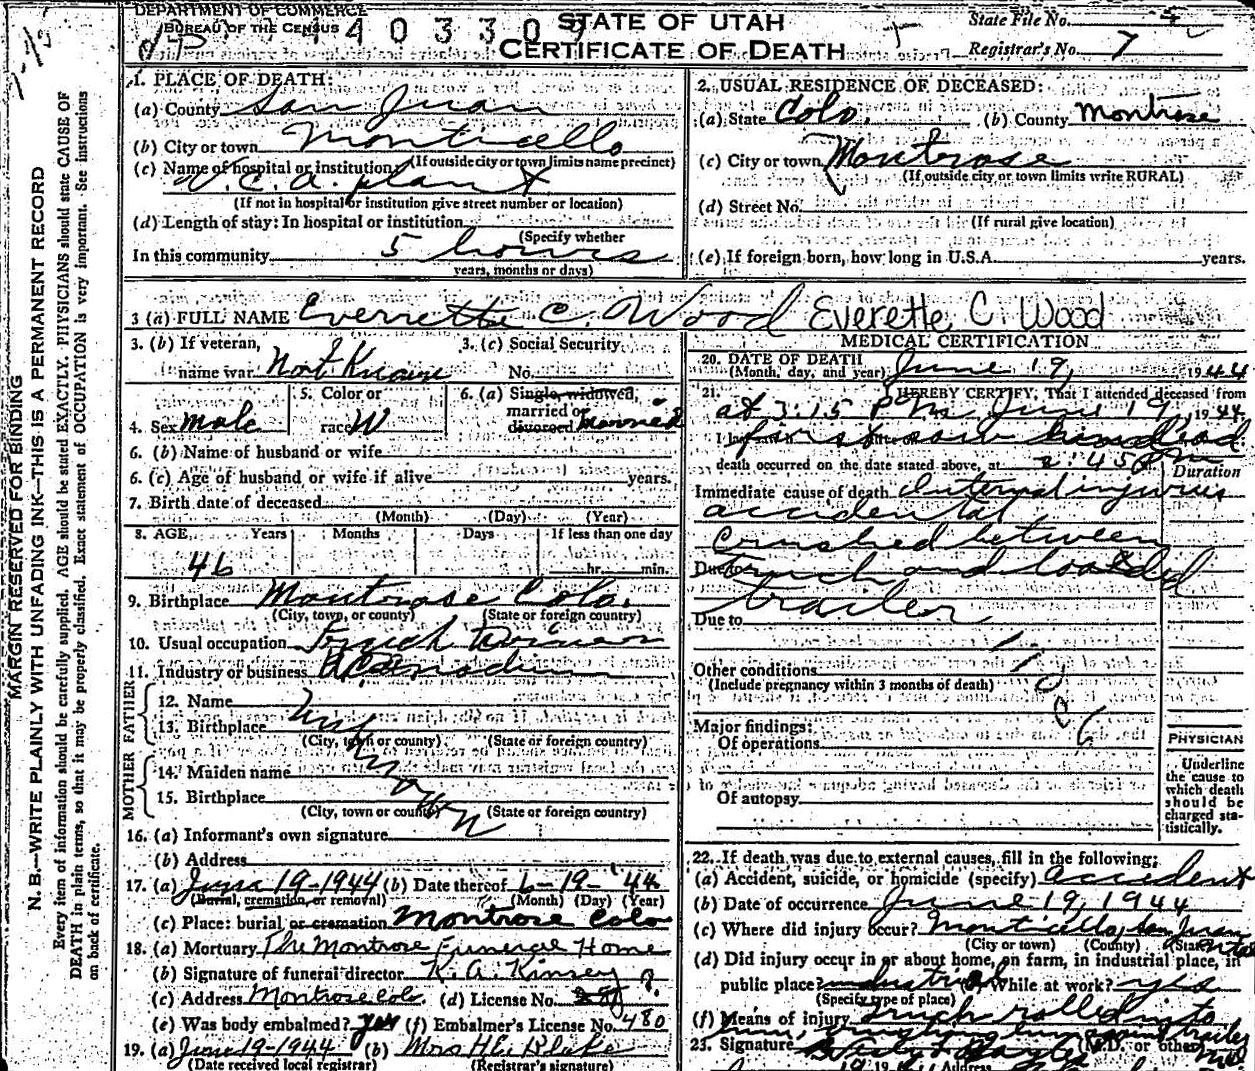 DEPARTMENT OF COMMERCE
BUREAU OF THE CENSUS
STATE OF UTAH
CERTIFICATE OF DEATH
State File No.
Registrar's No. 7
MARGIN RESERVED FOR BINDING
N. B.—WRITE PLAINLY WITH UNFADING INK—THIS IS A PERMANENT RECORD
Every item of information should be carefully supplied. AGE should be stated EXACTLY. PHYSICIANS should state CAUSE OF
DEATH in plain terms, so that it may be properly classified. Exact statement of OCCUPATION is very important. See instructions
on back of certificate.
1. PLACE OF DEATH:
(a) County San Juan
(b) City or town Monticello
(If outside city or town limits name precinct)
(c) Name of hospital or institution
V.C.A. plant
(If not in hospital or institution give street number or location)
(d) Length of stay: In hospital or institution
(Specify whether
In this community 5 hours
years, months or days)
2. USUAL RESIDENCE OF DECEASED:
(a) State Colo. (b) County Montrose
(c) City or town Montrose
(If outside city or town limits write RURAL)
(d) Street No.
(If rural give location)
(e) If foreign born, how long in U.S.A. years.
3 (a) FULL NAME Everrette C. Wood Everette C. Wood
3. (b) If veteran, name war Not Known
3. (c) Social Security No.
4. Sex Male
5. Color or race W
6. (a) Single, widowed, married or divorced Married
6. (b) Name of husband or wife
6. (c) Age of husband or wife if alive years.
7. Birth date of deceased
(Month) (Day) (Year)
8. AGE Years Months Days If less than one day
46 hr. min.
9. Birthplace Montrose Colo.
(City, town, or county) (State or foreign country)
10. Usual occupation Truck Driver
11. Industry or business
FATHER
12. Name
13. Birthplace
(City, town or county) (State or foreign country)
MOTHER
14. Maiden name
15. Birthplace
Unknown
(City, town or county) (State or foreign country)
16. (a) Informant's own signature
(b) Address
17. (a) June 19-1944 (b) Date thereof 6-19-'44
(Burial, cremation, or removal) (Month) (Day) (Year)
(c) Place: burial or cremation Montrose Colo
18. (a) Mortuary The Montrose Funeral Home
(b) Signature of funeral director K. A. Kinsey
(c) Address Montrose Colo. (d) License No.
(e) Was body embalmed? yes (f) Embalmer's License No. 480
19. (a) June 19-1944 (b) Mrs H.E. Blake
(Date received local registrar) (Registrar's signature)
MEDICAL CERTIFICATION
20. DATE OF DEATH
(Month, day, and year) June 19, 1944
21. I HEREBY CERTIFY, That I attended deceased from
at 3:15 P.M. June 19, 1944
first saw him dead
death occurred on the date stated above, at 2:45 P m
Duration
Immediate cause of death Internal injuries
accidental
crushed between
Due to truck and loaded
trailer
Due to
Other conditions
(Include pregnancy within 3 months of death)
Major findings:
Of operations
Of autopsy
PHYSICIAN
Underline
the cause to
which death
should be
charged sta-
tistically.
22. If death was due to external causes, fill in the following:
(a) Accident, suicide, or homicide (specify) accident
(b) Date of occurrence June 19, 1944
(c) Where did injury occur? Monticello, San Juan Utah
(City or town) (County) (State)
(d) Did injury occur in or about home, on farm, in industrial place, in
public place? industrial While at work? yes
(Specify type of place)
(f) Means of injury truck rolled into
him, crushing him against trailer
23. Signature (M.D. or other)
Address